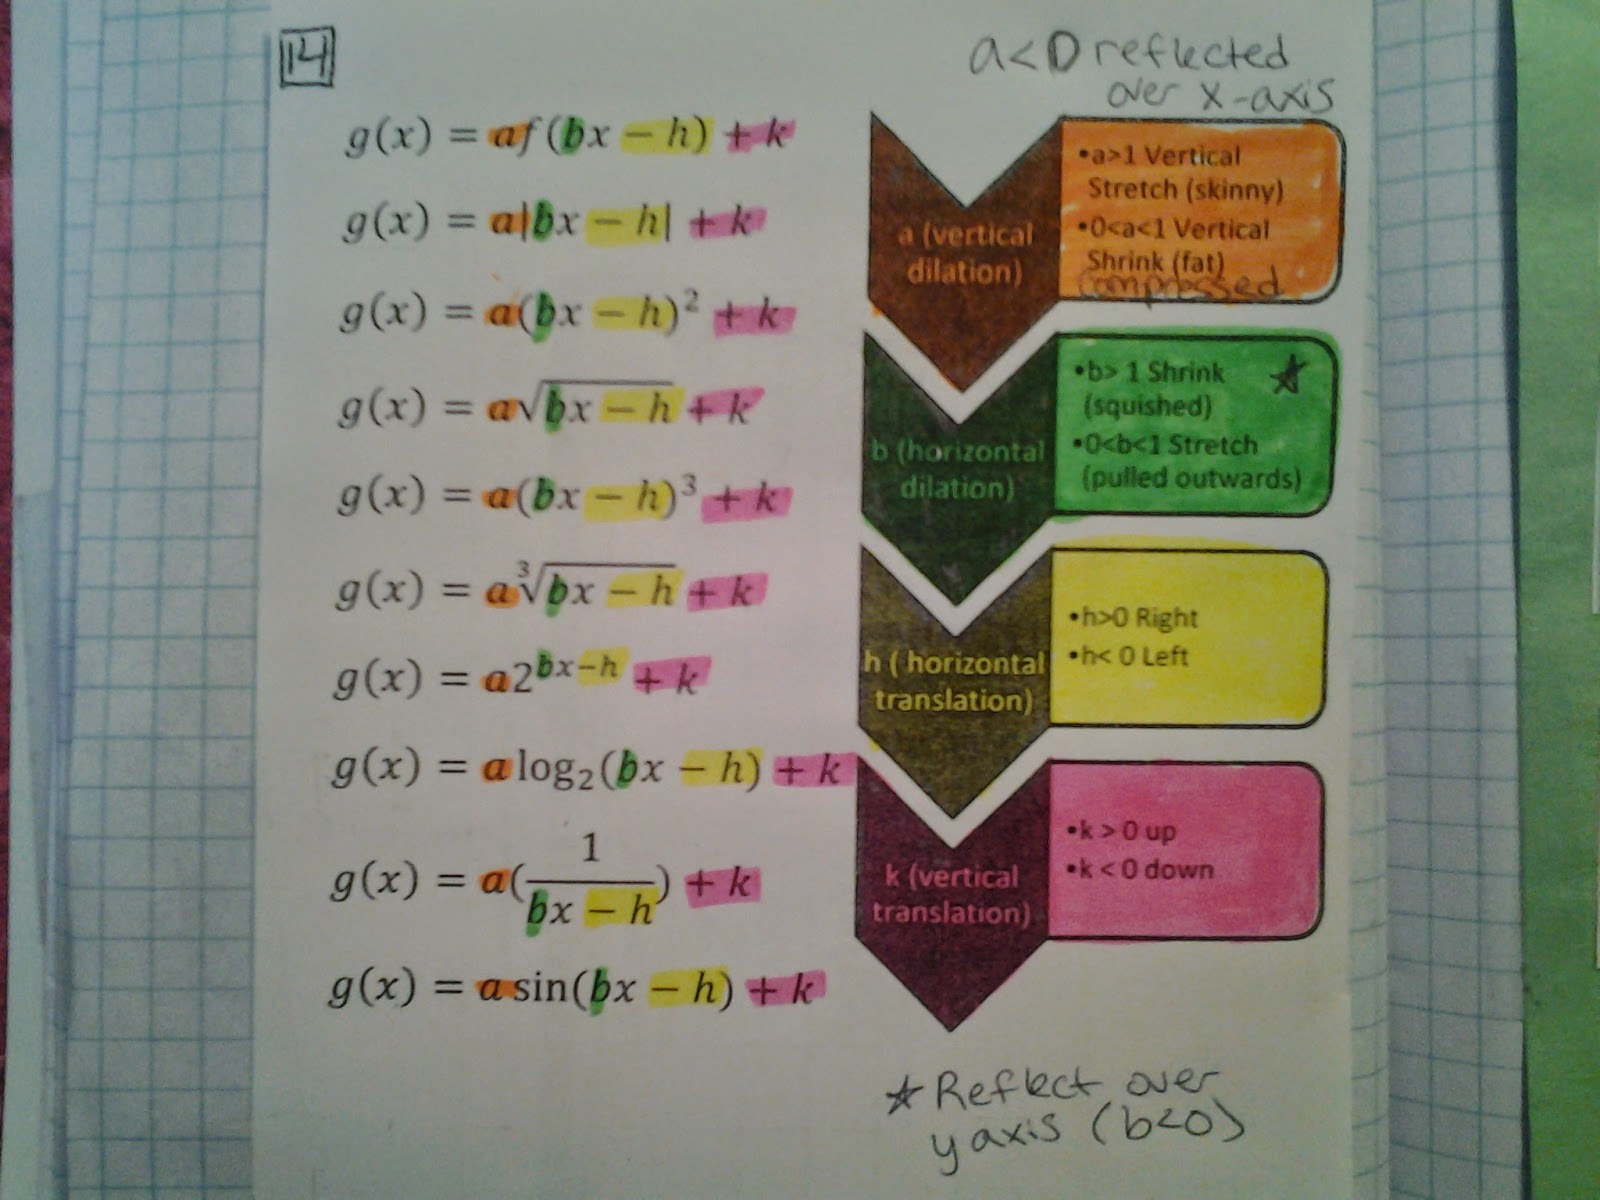 14
a<0 reflected
over x-axis
g(x) = af(bx − h) + k
g(x) = a|bx − h| + k
g(x) = a(bx − h)² + k
g(x) = a√(bx − h) + k
g(x) = a(bx − h)³ + k
g(x) = a∛(bx − h) + k
g(x) = a2^(bx−h) + k
g(x) = a log₂(bx − h) + k
g(x) = a(1/(bx − h)) + k
g(x) = a sin(bx − h) + k
a (vertical
dilation)
•a>1 Vertical
Stretch (skinny)
•0<a<1 Vertical
Shrink (fat)
compressed
b (horizontal
dilation)
•b> 1 Shrink
(squished)
•0<b<1 Stretch
(pulled outwards)
h ( horizontal
translation)
•h>0 Right
•h< 0 Left
k (vertical
translation)
•k > 0 up
•k < 0 down
★ Reflect over
y axis (b<0)